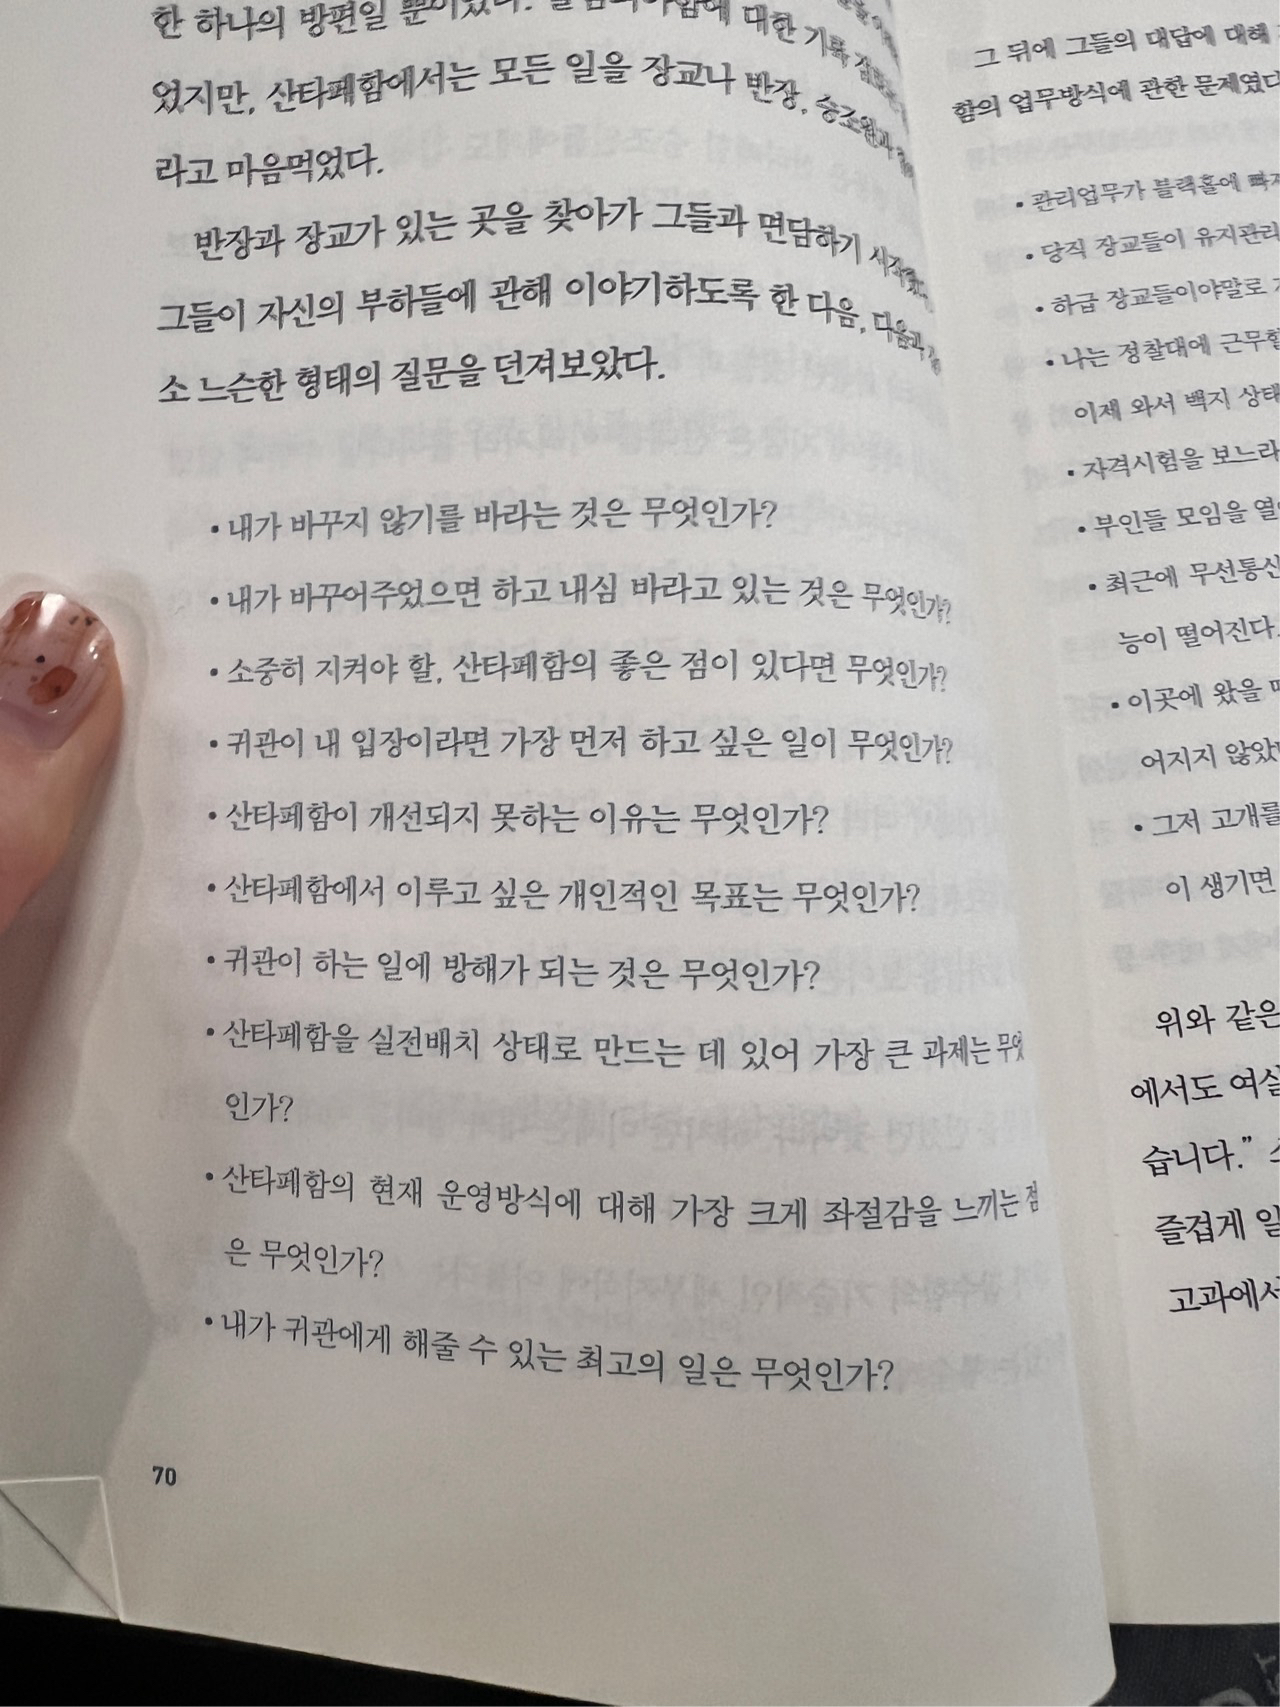 한 하나의 방편일 뿐이었다. 대한 기록
었지만, 산타페함에서는 모든 일을 장교나 반장, 승조원과
라고 마음먹었다.
반장과 장교가 있는 곳을 찾아가 그들과 면담하기
그들이 자신의 부하들에 관해 이야기하도록 한 다음, 다음과
소 느슨한 형태의 질문을 던져보았다.
• 내가 바꾸지 않기를 바라는 것은 무엇인가?
• 내가 바꾸어주었으면 하고 내심 바라고 있는 것은 무엇인가?
• 소중히 지켜야 할, 산타페함의 좋은 점이 있다면 무엇인가?
• 귀관이 내 입장이라면 가장 먼저 하고 싶은 일이 무엇인가?
• 산타페함이 개선되지 못하는 이유는 무엇인가?
• 산타페함에서 이루고 싶은 개인적인 목표는 무엇인가?
• 귀관이 하는 일에 방해가 되는 것은 무엇인가?
• 산타페함을 실전배치 상태로 만드는 데 있어 가장 큰 과제는 무엇
인가?
• 산타페함의 현재 운영방식에 대해 가장 크게 좌절감을 느끼는 점
은 무엇인가?
• 내가 귀관에게 해줄 수 있는 최고의 일은 무엇인가?
70
그 뒤에 그들의 대답에 대해
함의 업무방식에 관한 문제였다
• 관리업무가 블랙홀에
• 당직 장교들이 유지관리
• 하급 장교들이야말로
• 나는 정찰대에 근무할
이제 와서 백지 상태
• 자격시험을 보느라
• 부인들 모임을
• 최근에 무선통신
능이 떨어진다.
• 이곳에 왔을
어지지 않았
• 그저 고개를
이 생기면
위와 같은
에서도 여실
습니다."
즐겁게
고과에서